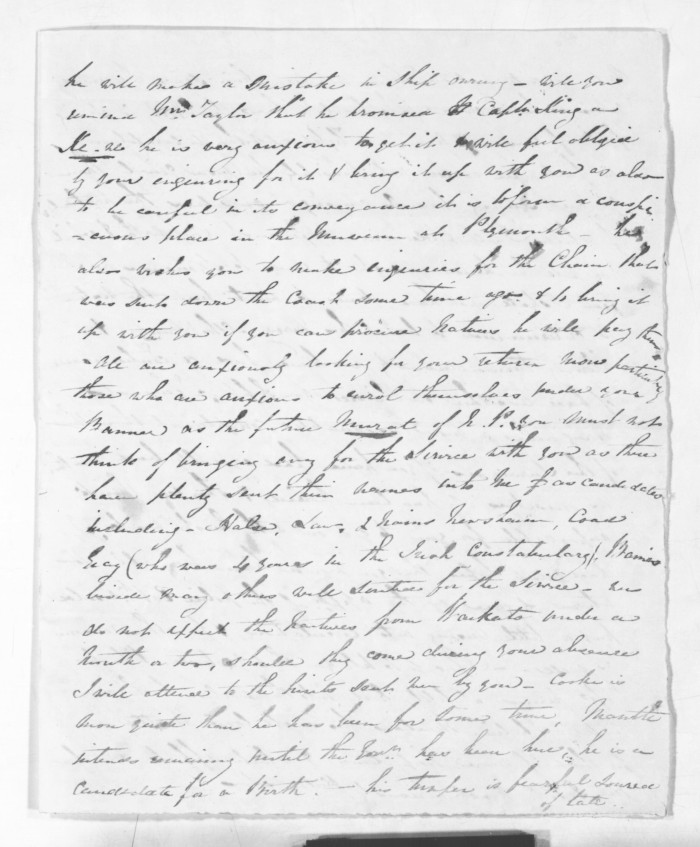 he will make a mistake in Ship owning - will you
remind Mr Taylor that he promised Capt. King a
he is very anxious to get it & will feel obliged
by your enquiring for it & bring it up with you as also
to be careful in its conveyance it is to form a conspi
-cuous place in the Museum at Plymouth - he
also wishes you to make enquiries for the Chain that
was sent down the Coast some time ago & to bring it
up with you if you can procure Natives he will pay them
- We are anxiously looking for your return more particularly
those who are anxious to enrol themselves under your
Banner as the future Murat of N.P. you must not
think of bringing any for the Service with you as there
have plenty sent their names into me as candidates
including - Halse, Law, 2 Newsham,
Gay (who was 4 years in the Irish Constabulary)
beside many others well for the Service - we
do not expect the Natives from Waikato under a
Month or two, should they come during your absence
I will attend to the hints sent me by you - Cooke is
more quiet than he has been for some time,
intends remaining until the Govr. has been here, he is a
candidate for a Birth. - his temper is fearful soured
of late.